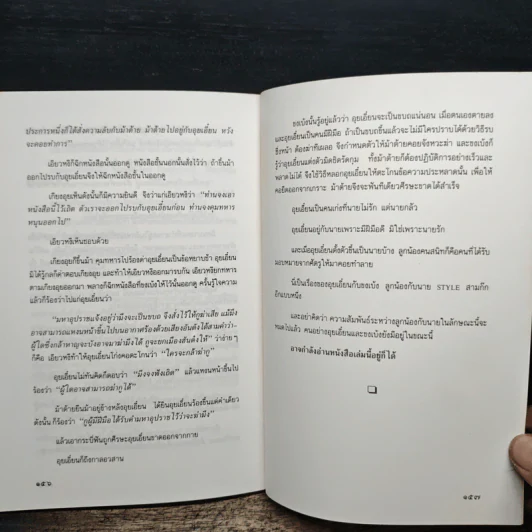 ประการหนึ่งก็ได้สั่งความลับกับม้าต้าย ม้าต้ายไปอยู่กับอุยเอี๋ยน หวัง
จะคอยทำการ”
เอียวหงีก็ฉีกหนังสือนั้นออกดู หนังสือชั้นนอกนั้นสั่งไว้ว่า ถ้ายิ้มม้า
ออกไปรบกับอุยเอี๋ยนจึงให้ฉีกหนังสือชั้นในออกดู
เกียงอุยเห็นดังนั้นก็มีความยินดี จึงว่าแก่เอียวหงีว่า “ท่านจงเอา
หนังสือนี้ไว้เถิด ตัวเราจะออกไปรบกับอุยเอี๋ยนก่อน ท่านจงคุมทหาร
หนุนออกไป”
เอียวหงีเห็นชอบด้วย
เกียงอุยก็ขึ้นม้า คุมทหารไปร้องด่าอุยเอี๋ยนเป็นข้อหยาบช้า อุยเอี๋ยน
มิได้รู้กลก็ด่าตอบเกียงอุย และท้าให้เอียวหงีออกมารบกัน เอียวหงียกทหาร
ตามเกียงอุยออกมา พลางก็ฉีกหนังสือที่ขงเบ้งให้ไว้นั้นออกดู ครั้นรู้ใจความ
แล้วก็ร้องว่าไปแก่อุยเอี๋ยนว่า
“มหาอุปราชแจ้งอยู่ว่ามึงจะเป็นขบถ จึงสั่งไว้ให้กูฆ่าเสีย แม้มึง
อาจสามารถแหงนหน้าขึ้นไปบนอากาศร้องด้วยเสียงอันดังได้สามคำว่า-
ผู้ใดซึ่งกล้าหาญจะบังอาจมาฆ่ามึงได้ กูจะยกเมืองฮันต๋งให้” ว่าง่าย ๆ
ก็คือ เอียวหงีทำให้อุยเอี๋ยนโก่งคอตะโกนว่า “ใครจะกล้าฆ่ากู”
อุยเอี๋ยนไม่ทันคิดก็ตอบว่า “มึงจงฟังเถิด” แล้วแหงนหน้าขึ้นไป
ร้องว่า “ผู้ใดอาจสามารถฆ่ากูได้”
ม้าต้ายยืนม้าอยู่ข้างหลังอุยเอี๋ยน ได้ยินอุยเอี๋ยนร้องขึ้นแต่คำเดียว
ดังนั้น ก็ร้องว่า “กูผู้มีฝีมือได้รับคำมหาอุปราชไว้ว่าจะฆ่ามึง”
แล้วเอากระบี่ฟันถูกศีรษะอุยเอี๋ยนขาดออกจากกาย
อุยเอี๋ยนก็ถึงกาลอวสาน
๑๕๖
ขงเบ้งนั้นรู้อยู่แล้วว่า อุยเอี๋ยนจะเป็นขบถแน่นอน เมื่อตนเองตายลง
และอุยเอี๋ยนเป็นคนมีฝีมือ ถ้าเป็นขบถขึ้นแล้วจะไม่มีใครปราบได้ด้วยวิธีรบ
ซึ่งหน้า ต้องฆ่าทีเผลอ จึงกำหนดตัวให้ม้าต้ายคอยจังหวะฆ่า และขงเบ้งก็
รู้ว่าอุยเอี๋ยนแต่งตัวมิดชิดรัดกุม ทั้งม้าต้ายก็ต้องปฏิบัติการอย่างเร็วและ
พลาดไม่ได้ จึงใช้วิธีหลอกอุยเอี๋ยนให้ตะโกนข้อความประหลาดนั้น เพื่อให้
คอยืดออกจากเกราะ ม้าต้ายจึงจะฟันทีเดียวศีรษะขาดได้สำเร็จ
อุยเอี๋ยนเป็นคนเก่งที่นายไม่รัก แต่นายกลัว
อุยเอี๋ยนอยู่กับนายเพราะมีฝีมือดี มิใช่เพราะนายรัก
และเมื่ออุยเอี๋ยนตั้งตัวขึ้นเป็นนายบ้าง ลูกน้องคนสนิทก็คือคนที่ได้รับ
มอบหมายจากศัตรูให้มาคอยทำลาย
นี่เป็นเรื่องของอุยเอี๋ยนกับขงเบ้ง ลูกน้องกับนาย STYLE สามก๊ก
อีกแบบหนึ่ง
และอย่าคิดว่า ความสัมพันธ์ระหว่างลูกน้องกับนายในลักษณะนี้จะ
หมดไปแล้ว คนอย่างอุยเอี๋ยนและขงเบ้งยังมีอยู่ในขณะนี้
อาจกำลังอ่านหนังสือเล่มนี้อยู่ก็ได้
๑๕๗